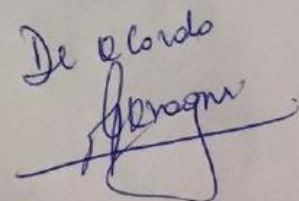 De acordo